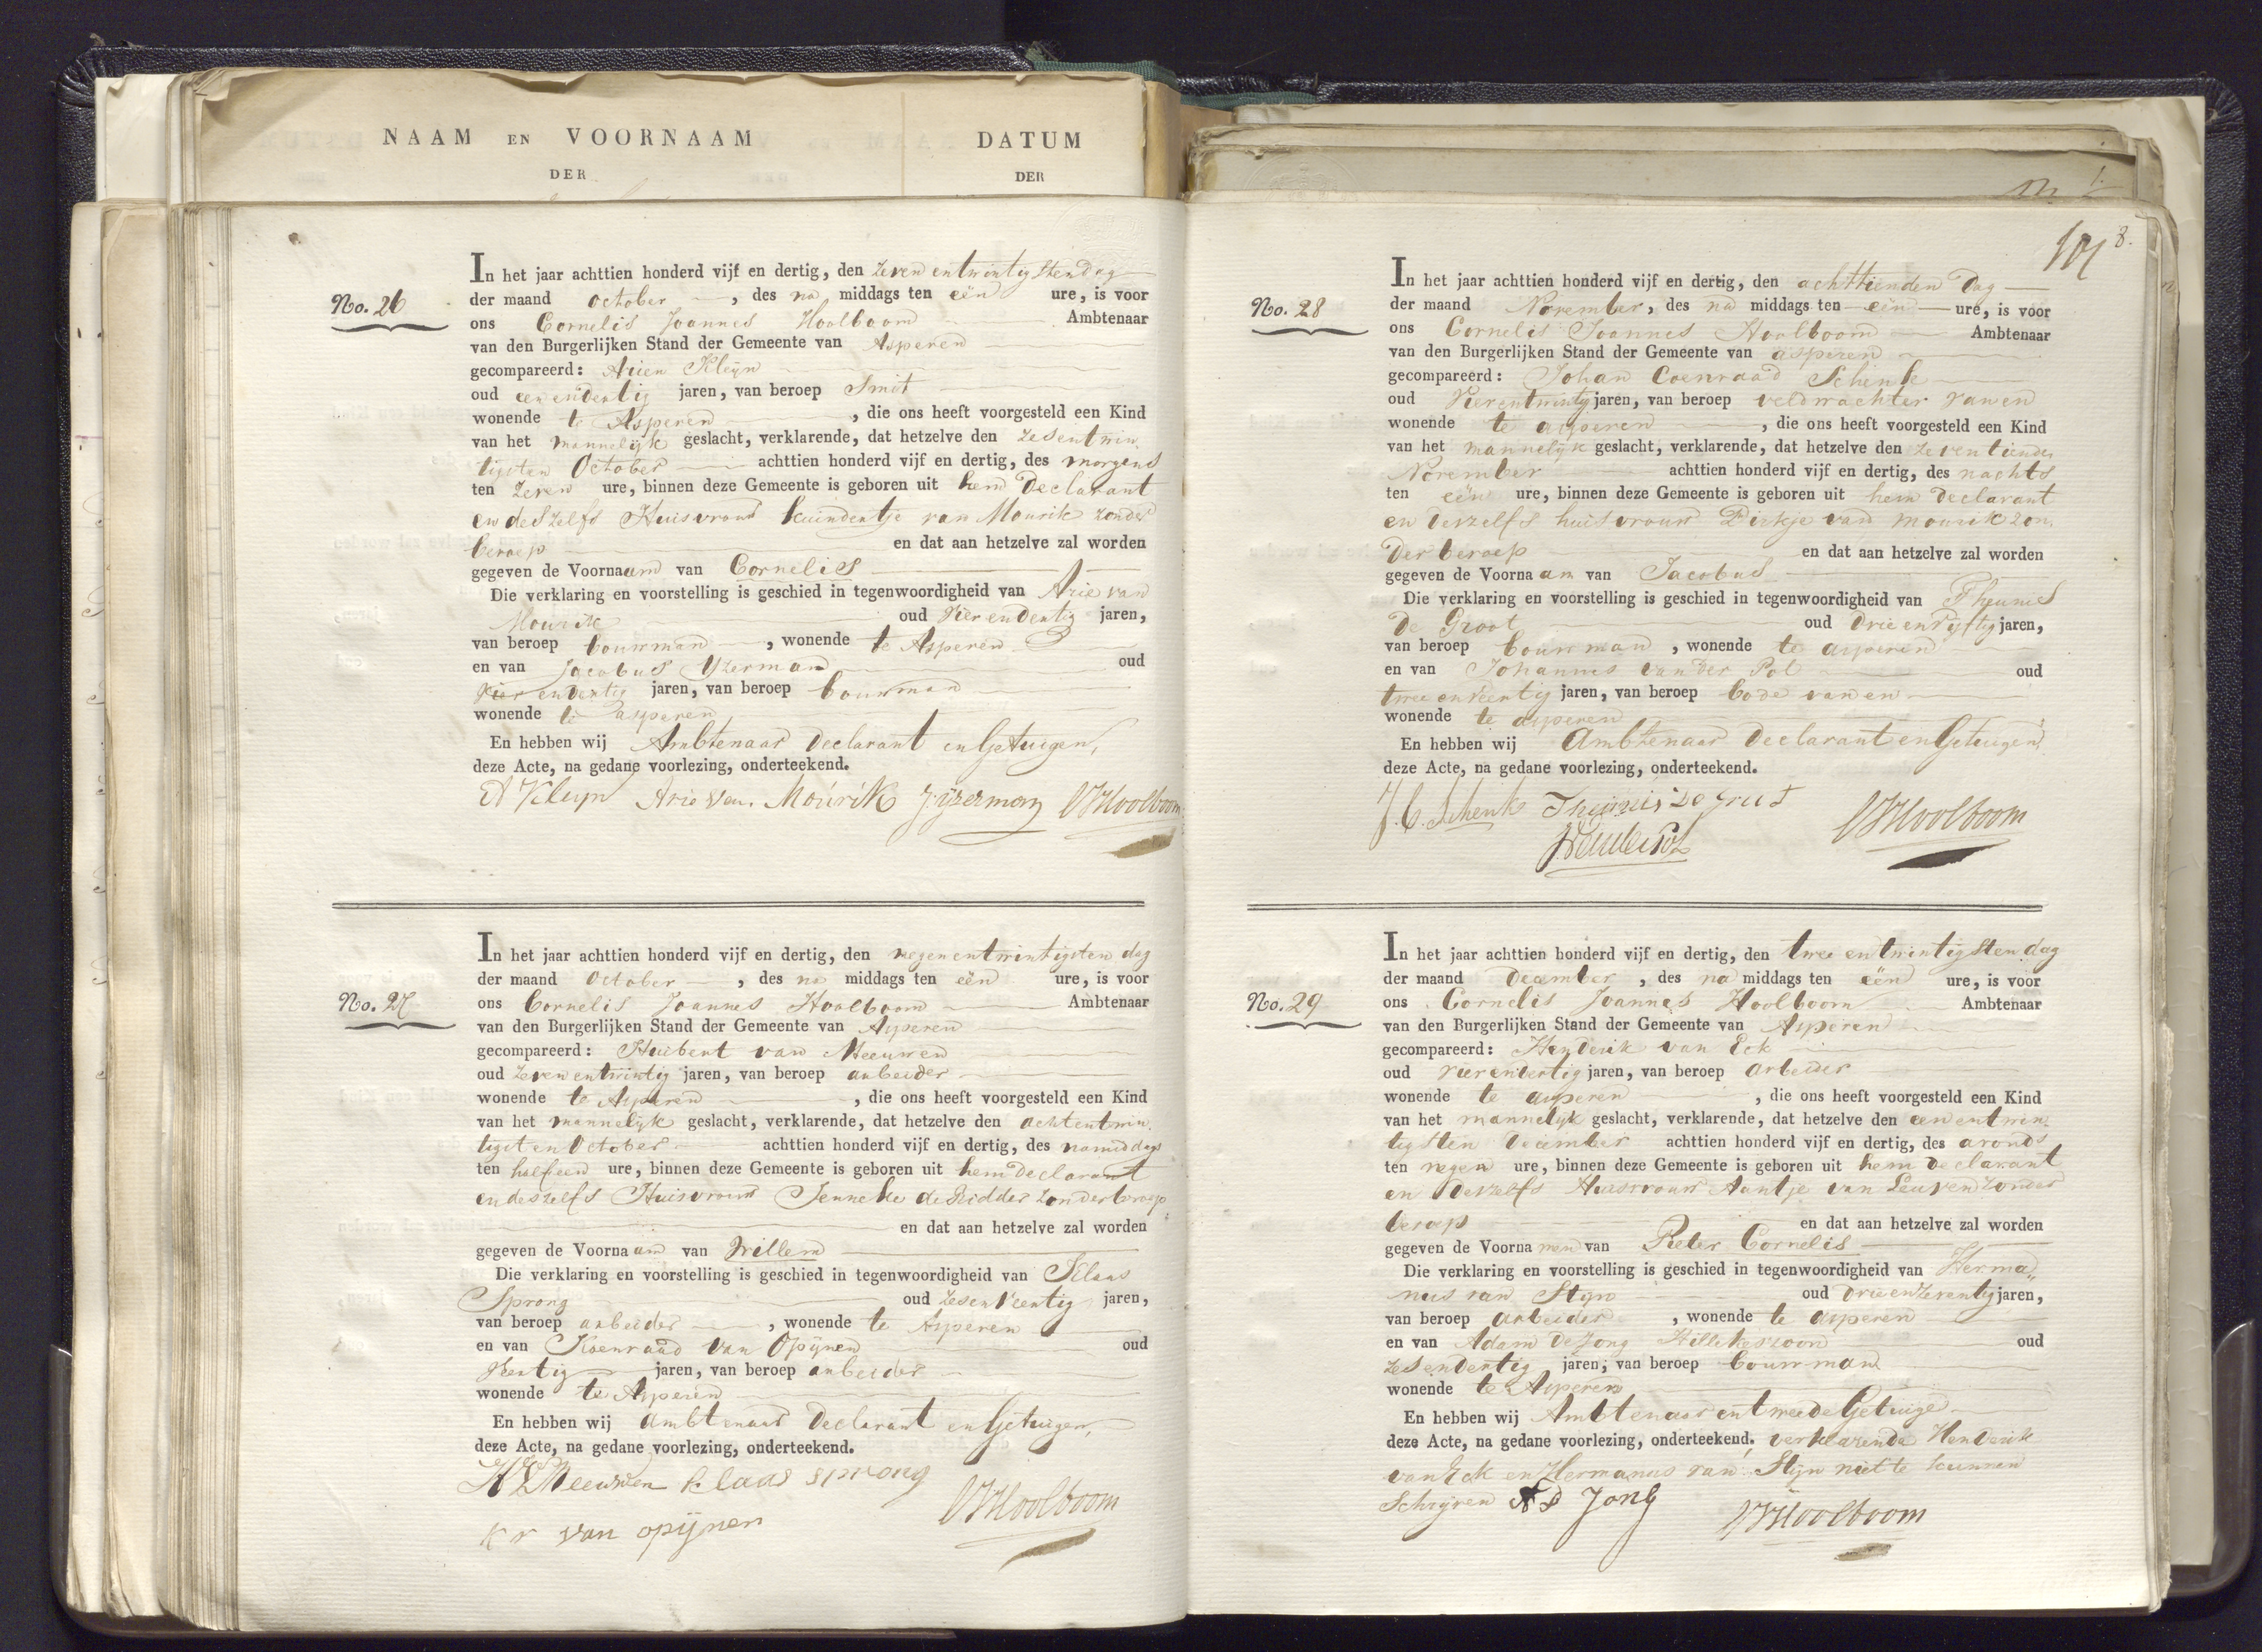 NAAM EN VOORNAAM
DER
DATUM
DER
No. 26
In het jaar achttien honderd vijf en dertig, den zeven entwintigsten dag
der maand October, des na middags ten eën ure, is voor
ons Cornelis Joannes Hoolboom Ambtenaar
van den Burgerlijken Stand der Gemeente van Asperen
gecompareerd: Arien Kleijn
oud een endertig jaren, van beroep Smit
wonende te Asperen, die ons heeft voorgesteld een Kind
van het mannelijk geslacht, verklarende, dat hetzelve den zesentwin
tigsten October achttien honderd vijf en dertig, des morgens
ten zeven ure, binnen deze Gemeente is geboren uit hem Declarant
en deszelfs Huisvrouw van Mourik zonder
beroep en dat aan hetzelve zal worden
gegeven de Voornaam van Cornelis
Die verklaring en voorstelling is geschied in tegenwoordigheid van Arie van
Mourik oud vier endertig jaren,
van beroep bouwman, wonende te Asperen
en van Jacobus Yzerman oud
vier endertig jaren, van beroep bouwman
wonende te asperen
En hebben wij Ambtenaar Declarant en Getuigen,
deze Acte, na gedane voorlezing, onderteekend.
A Kleyn Arie van Mourik J ijzerman CJHoolboom
No. 27
In het jaar achttien honderd vijf en dertig, den negenentwintigsten dag
der maand October, des na middags ten eën ure, is voor
ons Cornelis Joannes Hoolboom Ambtenaar
van den Burgerlijken Stand der Gemeente van Asperen
gecompareerd: Huibert van Meeuwen
oud zevenentwintig jaren, van beroep arbeider
wonende te Asperen, die ons heeft voorgesteld een Kind
van het mannelijk geslacht, verklarende, dat hetzelve den achtentwin
tigsten October achttien honderd vijf en dertig, des namiddags
ten halfeen ure, binnen deze Gemeente is geboren uit hem Declarant
en deszelfs Huisvrouw Jenneke de Ridder zonder beroep
en dat aan hetzelve zal worden
gegeven de Voornaam van Willem
Die verklaring en voorstelling is geschied in tegenwoordigheid van Klaas
Sprong oud zesenveertig jaren,
van beroep arbeider, wonende te Asperen
en van Koenraad van Opijnen oud
veertig jaren, van beroep arbeider
wonende te Asperen
En hebben wij Ambtenaar Declarant en Getuigen,
deze Acte, na gedane voorlezing, onderteekend.
H V Meeuwen klaas sprong
kr van opijnen CJHoolboom
8.
No. 28
In het jaar achttien honderd vijf en dertig, den achttienden Dag
der maand November, des na middags ten eën ure, is voor
ons Cornelis Joannes Hoolboom Ambtenaar
van den Burgerlijken Stand der Gemeente van asperen
gecompareerd: Johan Coenraad Schenk
oud vierentwintig jaren, van beroep veldwachter van en
wonende te asperen, die ons heeft voorgesteld een Kind
van het mannelijk geslacht, verklarende, dat hetzelve den zeventienden
November achttien honderd vijf en dertig, des nachts
ten eën ure, binnen deze Gemeente is geboren uit hem declarant
en deszelfs huisvrouw Dirkje van mourik zon
der beroep en dat aan hetzelve zal worden
gegeven de Voornaam van Jacobus
Die verklaring en voorstelling is geschied in tegenwoordigheid van Theunis
De Groot oud drie envijftig jaren,
van beroep bouwman, wonende te asperen
en van Johannes van der Pol oud
twee enveertig jaren, van beroep bode van en
wonende te asperen
En hebben wij Ambtenaar Declarant en Getuigen,
deze Acte, na gedane voorlezing, onderteekend.
J. C. Schenk Theunis de Groot
JVanderPol CJHoolboom
No. 29
In het jaar achttien honderd vijf en dertig, den twee entwintigsten dag
der maand December, des na middags ten eën ure, is voor
ons Cornelis Joannes Hoolboom Ambtenaar
van den Burgerlijken Stand der Gemeente van Asperen
gecompareerd: Henderik van Eck
oud vierendertig jaren, van beroep arbeider
wonende te asperen, die ons heeft voorgesteld een Kind
van het mannelijk geslacht, verklarende, dat hetzelve den eenentwin
tigsten December achttien honderd vijf en dertig, des avonds
ten negen ure, binnen deze Gemeente is geboren uit hem declarant
en deszelfs Huisvrouw Aantje van Leuven zonder
beroep en dat aan hetzelve zal worden
gegeven de Voornamen van Pieter Cornelis
Die verklaring en voorstelling is geschied in tegenwoordigheid van Herma„
nus van Stijn oud drieenzeventig jaren,
van beroep arbeider, wonende te asperen
en van Adam De Jong Hilleke zoon oud
zesendertig jaren, van beroep bouwman
wonende te Asperen
En hebben wij Ambtenaar en tweede Getuige
deze Acte, na gedane voorlezing, onderteekend, verklarende Henderik
van Eck en Hermanus van Stijn niet te kunnen
Schrijven A D Jong CJHoolboom